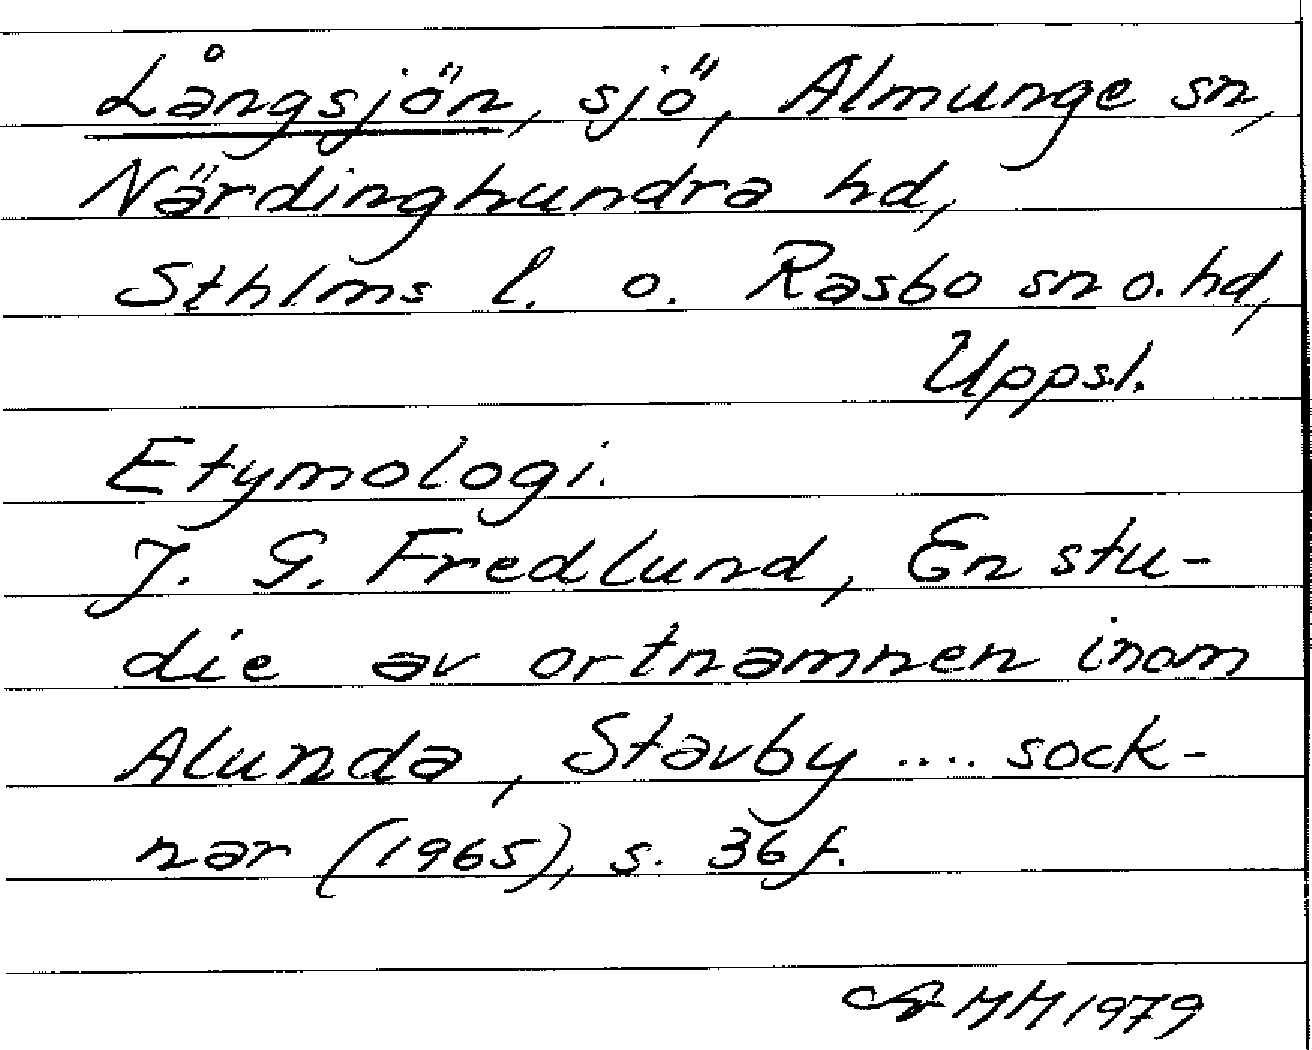 Långsjön, sjö, Almunge sn,
Närdinghundra hd,
Sthlms l. o. Rasbo sn o. hd,
Upps.l.
Etymologi.
J. G. Fredlund, En stu-
die av ortnamnen inom
Alunda, Stavby .... sock-
nar (1965), s. 36 f.
MM 1979